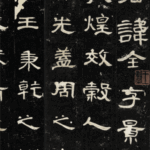 諱全字景
煌效穀人
先蓋周之
王秉乾之